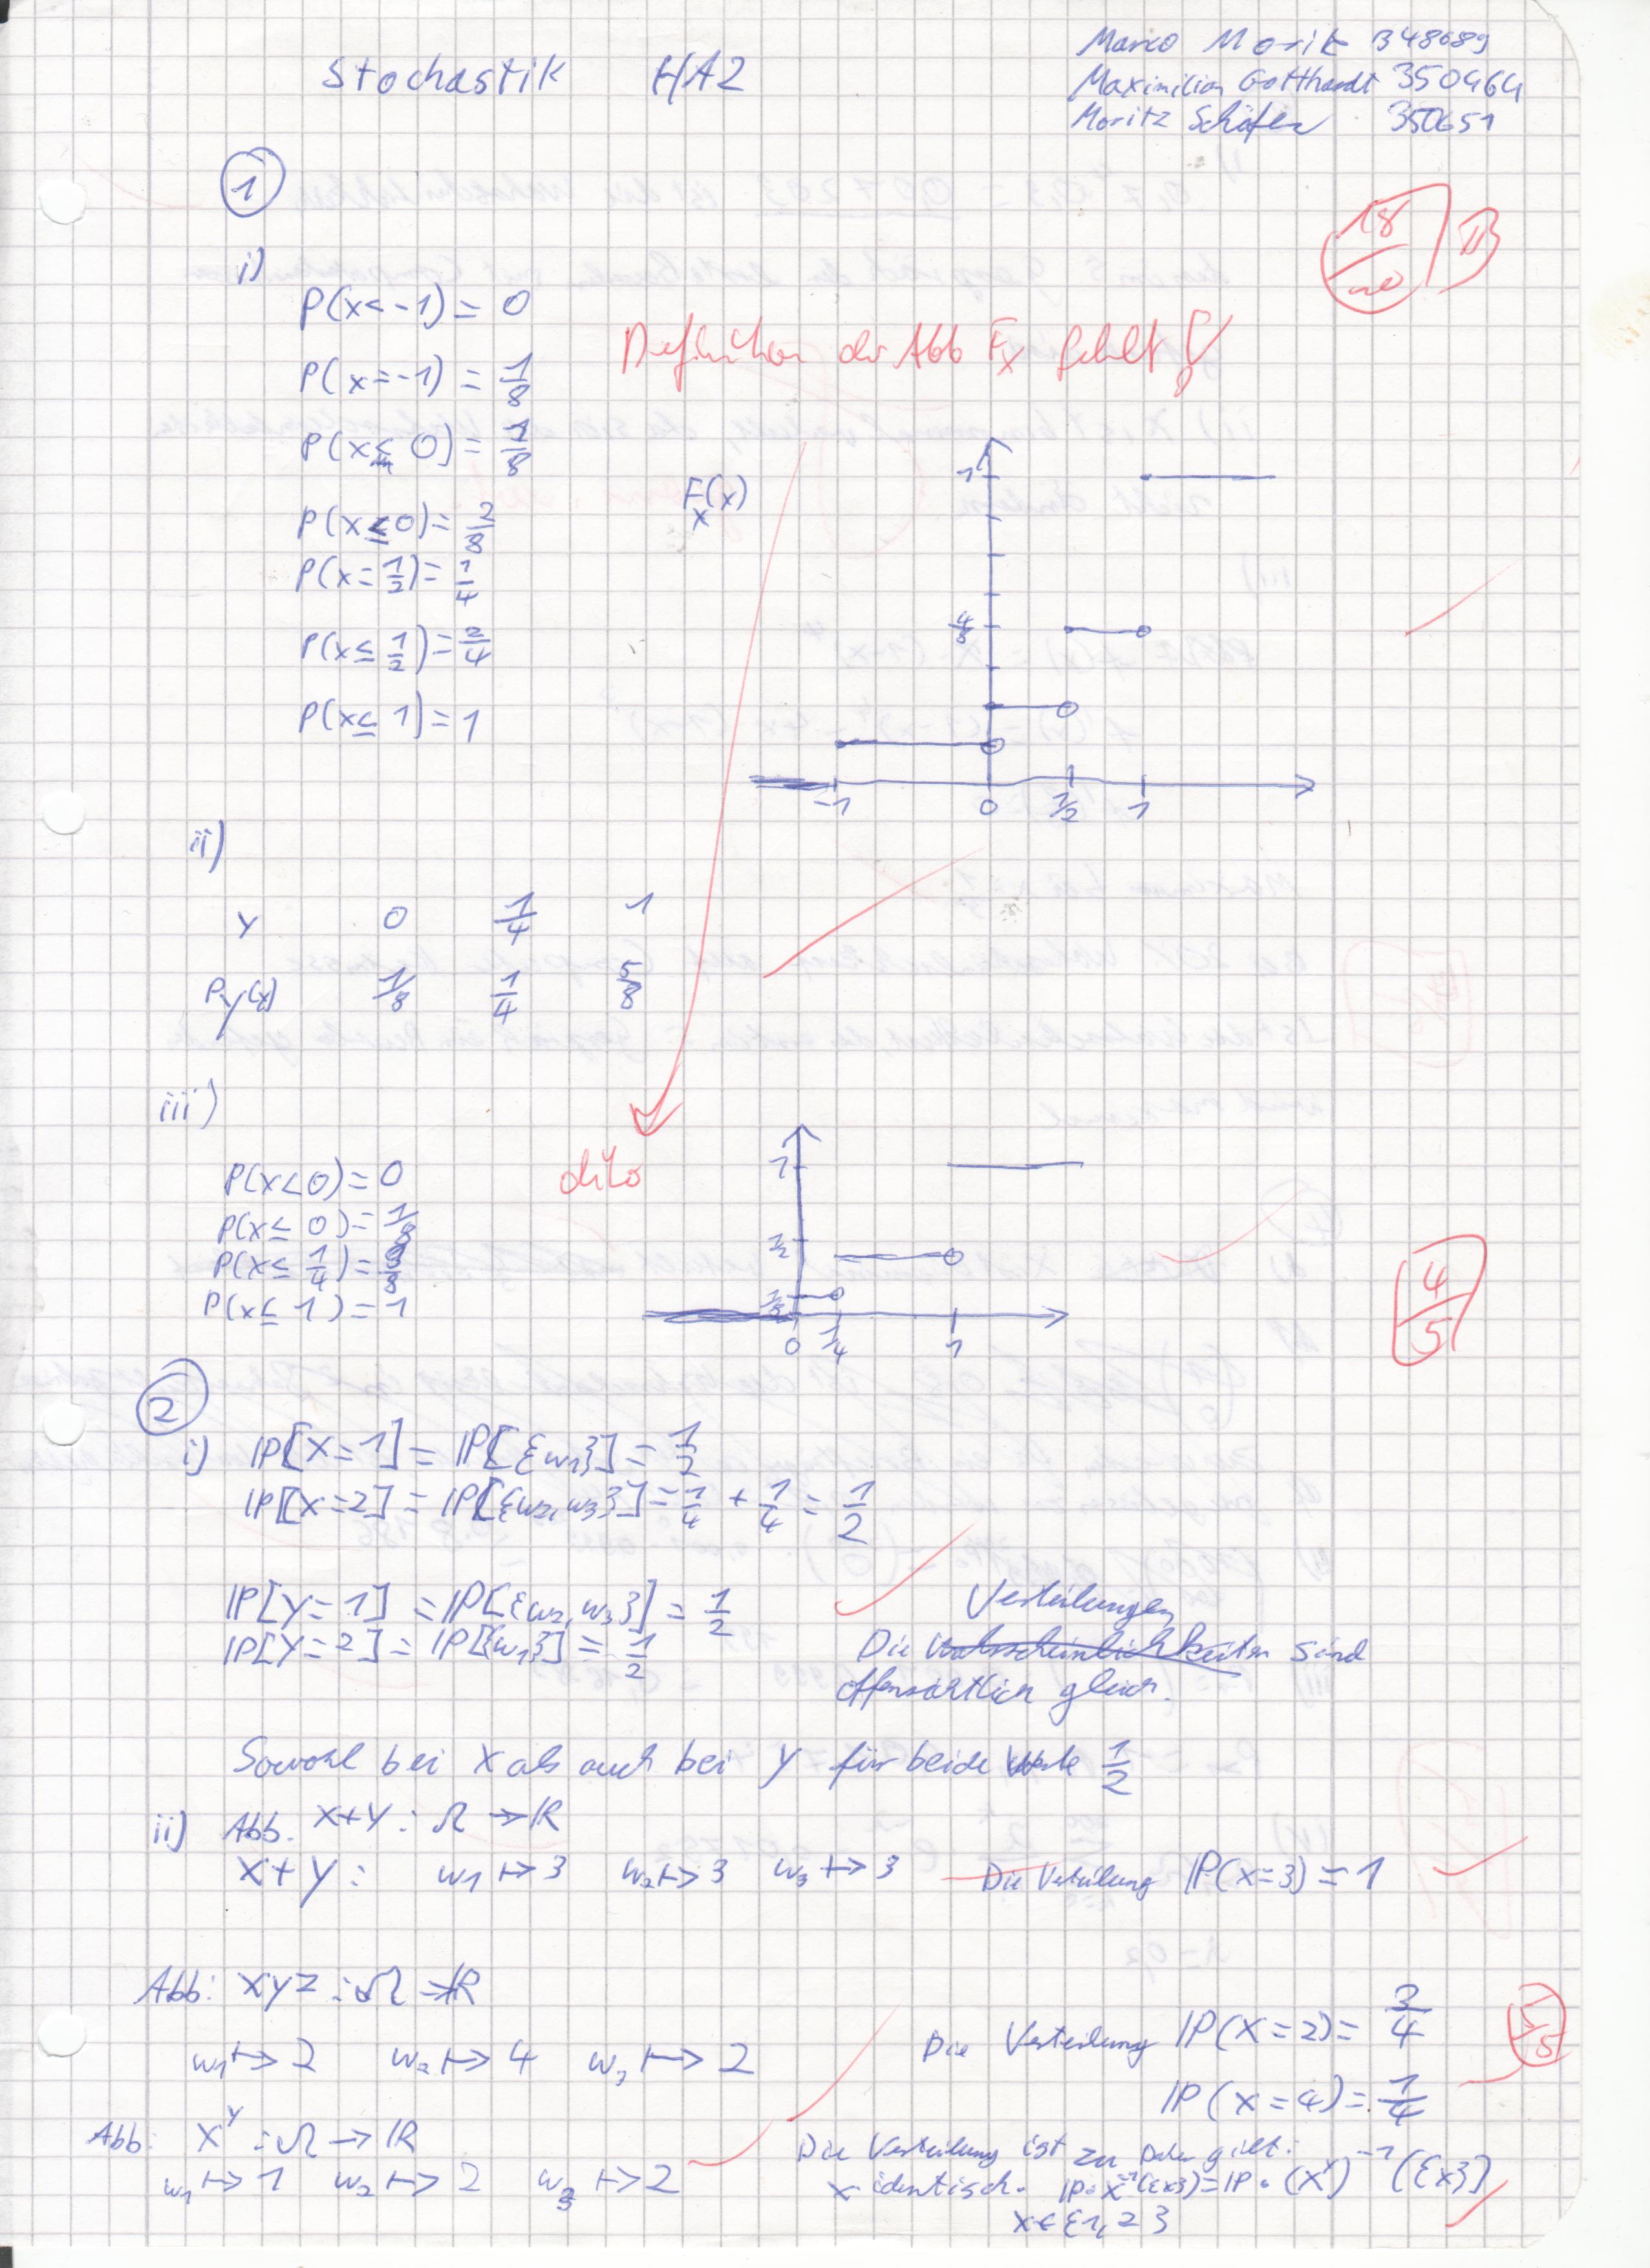 Stochastik HA2
Marco Morik 348689
Maximilian Gotthardt 350464
Moritz Schäfer 350651
18/20
1
i)
P(x<-1) = 0
P(x=-1) = 1/8
P(x≤0) = 2/8
P(x≤0) = 2/8
P(x=1/2) = 1/4
P(x≤1/2) = 2/4
P(x≤1) = 1
Definition der Abb Fx fehlt
Fx(x)
1
4/8
-1 0 1/2 1
ii)
Y 0 1/4 1
PY(x) 1/8 1/4 5/8
iii)
dito
P(x<0) = 0
P(x≤0) = 1/8
P(x≤1/4) = 3/8
P(x≤1) = 1
1
1/2
1/8
0 1/4 1
4/5
2
i) IP[X=1] = IP[{w1}] = 1/2
IP[X=2] = IP[{w2,w3}] = 1/4 + 1/4 = 1/2
IP[Y=1] = IP[{w2,w3}] = 1/2
IP[Y=2] = IP[{w1}] = 1/2
Verteilungen
Die Wahrscheinlichkeiten sind
offensichtlich gleich.
Sowohl bei X als auch bei Y für beide Werte 1/2
ii) Abb. X+Y : Ω → IR
X+Y : w1 ↦ 3 w2 ↦ 3 w3 ↦ 3 Die Verteilung IP(X=3) = 1
Abb: XYZ : Ω → IR
w1 ↦ 2 w2 ↦ 4 w3 ↦ 2
Die Verteilung IP(X=2) = 3/4
IP(X=4) = 1/4
5/5
Abb: X^Y : Ω → IR
w1 ↦ 1 w2 ↦ 2 w3 ↦ 2
Die Verteilung ist zu Daher gilt:
X identisch. IP∘X^-1({x}) = IP∘(X^Y)^-1({x})
x∈{1,2}